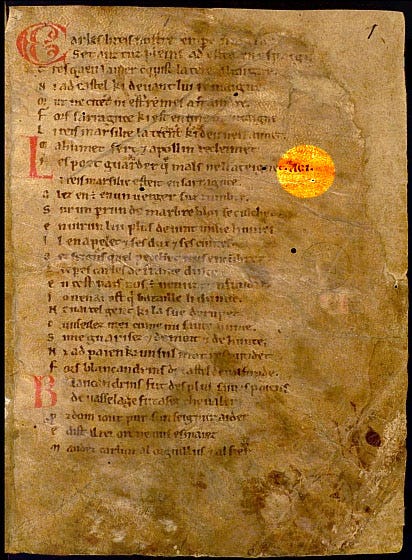 Carles li reis nostre emperere
Set anz tuz pleins ad estet en espaigne
Tres quen la mer cunquist la tere altaigne
Ni ad castel ki devant lui remaigne
Mur ne citet ni est remes a fraindre
Fors sarraguce ki est en une muntaigne
Li reis marsilie la tient ki deu nen aimet
Mahumet sert e apollin recleimet
Nes poet guarder que mals ne li ateignet. AOI.
Li reis marsilie esteit en sarraguce
Alez en est en un verger suz lumbre
Sur un perrun de marbre bloi se culchet
Envirun lui plus de vint milie humes
Il en apelet e ses dux e ses cuntes
Oez seignurs quel pecchet nus encumbret
Li empereres carles de france dulce
En cest pais nos est venuz cunfundre
Jo nen ai ost qui bataille li dunne
Nai tel gent ki la sue derumpet
Cunseilez mei cume mi savie hume
Si me guarisez e de mort e de hunte
Ni ad paien ki un sul mot respundet
Fors blancandrins de castel de valfunde
Blancandrins fut des plus saives paiens
De vasselage fut asez chevaler
Prozdom i out pur sun seignur aider
E dist al rei or ne vus esmaiez
Mandez carlun al orguillus e al fier